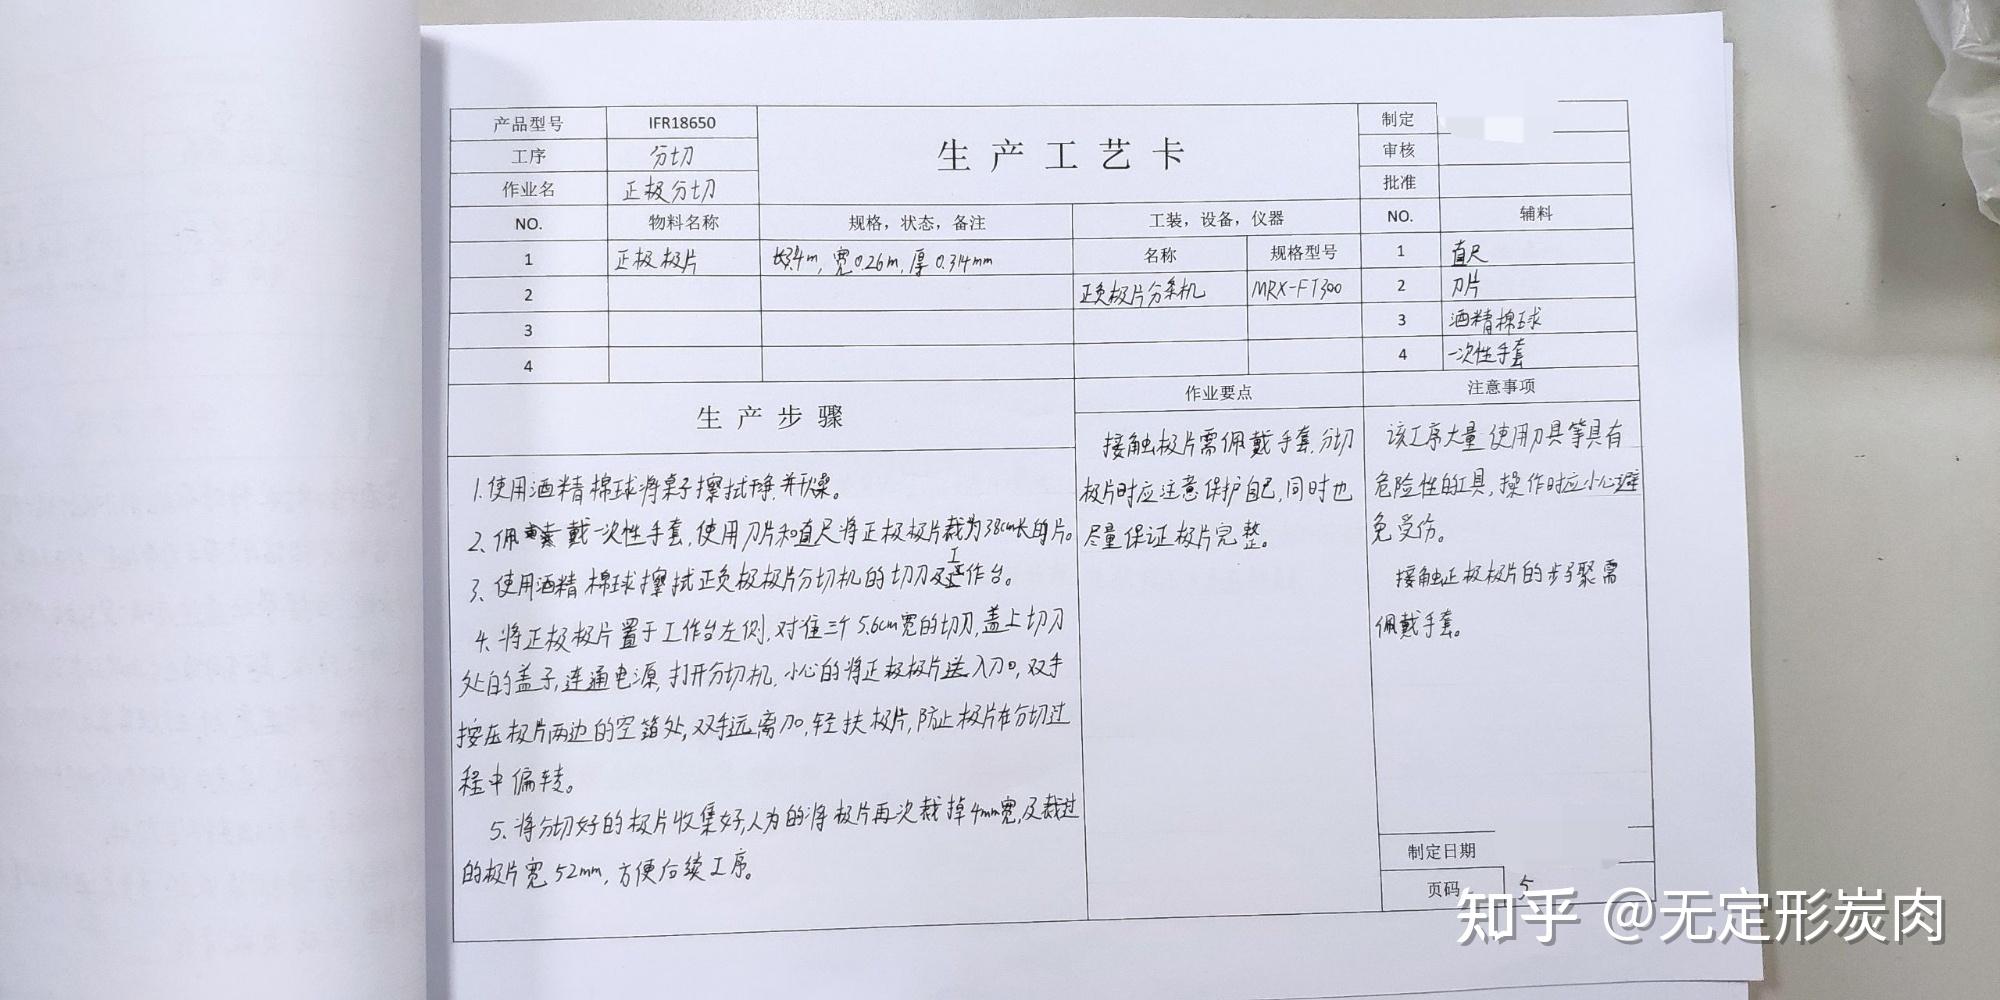 产品型号 IFR18650 生产工艺卡 制定
工序 分切 审核
作业名 正极分切 批准
NO. 物料名称 规格，状态，备注 工装，设备，仪器 NO. 辅料
1 正极极片 长3.4m，宽0.26m，厚0.314mm 名称 规格型号 1 直尺
2 正负极片分条机 MRX-FT300 2 刀片
3 3 酒精棉球
4 4 一次性手套
生产步骤
1.使用酒精棉球将桌子擦拭干净，并干燥。
2、佩戴一次性手套，使用刀片和直尺将正极极片裁为38cm长的片。
3、使用酒精棉球擦拭正负极极片分切机的切刀及工作台。
4、将正极极片置于工作台左侧，对准三个5.6cm宽的切刀，盖上切刀
处的盖子，连通电源，打开分切机，小心的将正极极片送入刀口，双手
按在极片两边的空箔处，双手远离刀口，轻扶极片，防止极片在分切过
程中偏转。
5、将分切好的极片收集好，人为的将极片再次裁掉4mm宽，及裁过
的极片宽52mm，方便后续工序。
作业要点
接触极片需佩戴手套，分切
极片时应注意保护自己，同时也
尽量保证极片完整。
注意事项
该工序大量使用刀具等具有
危险性的工具，操作时应小心避
免受伤。
接触正极极片的步骤需
佩戴手套。
制定日期
页码 5
知乎 @无定形炭肉